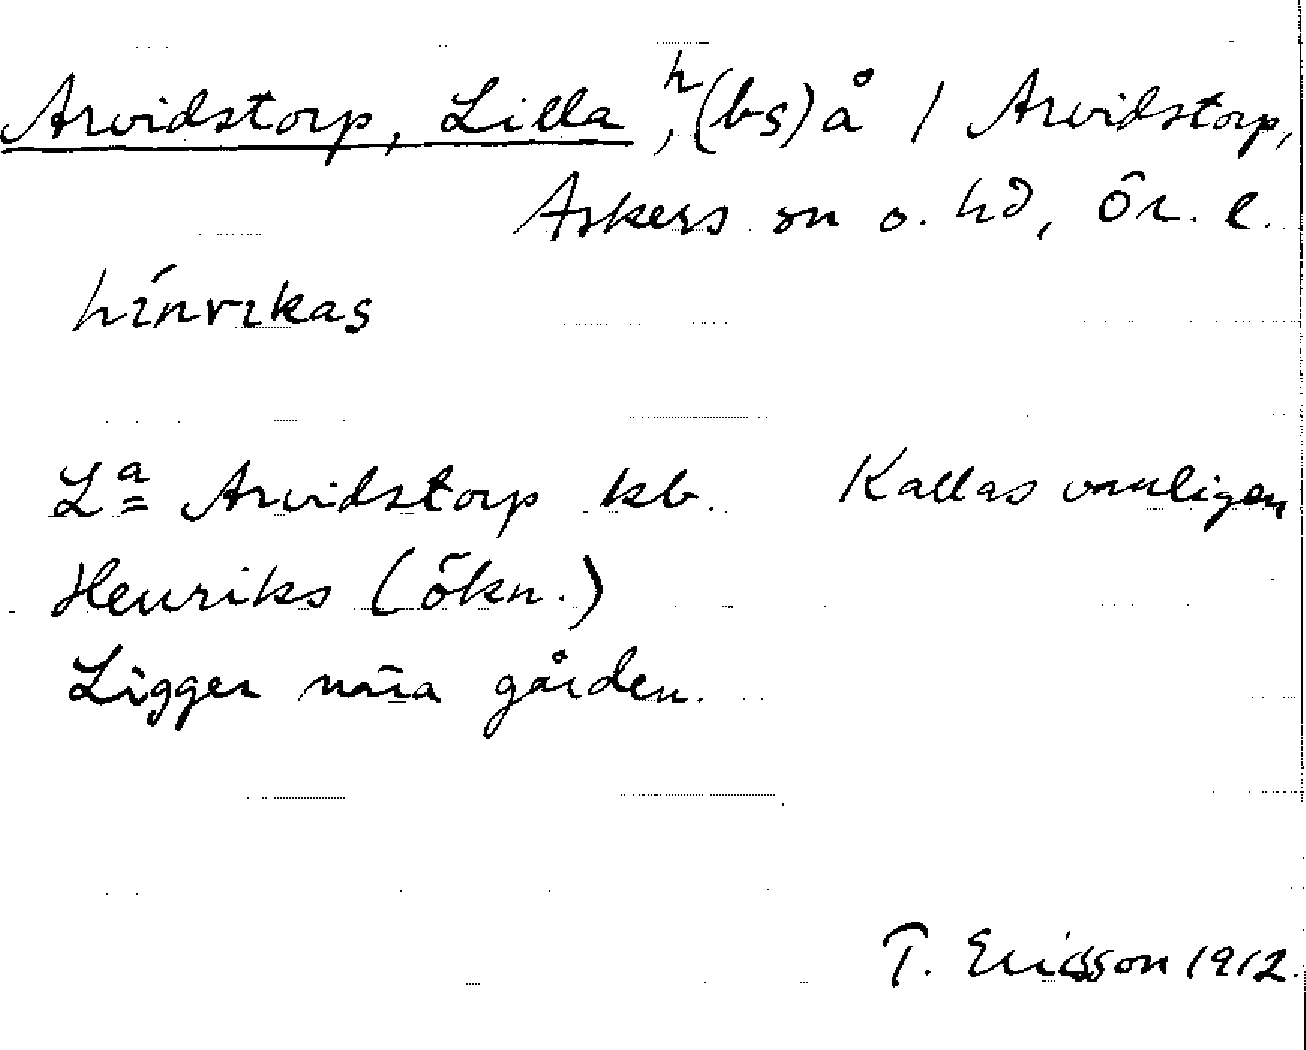 Arvidstorp, Lilla, h (bs) å / Arvidstorp,
Askers sn o. hd, Ör. l.
hínrıkas
Lª Arvidstorp kb. Kallas vanligen
Henriks (ökn.)
Ligger nära gården.
T. Ericsson 1912.